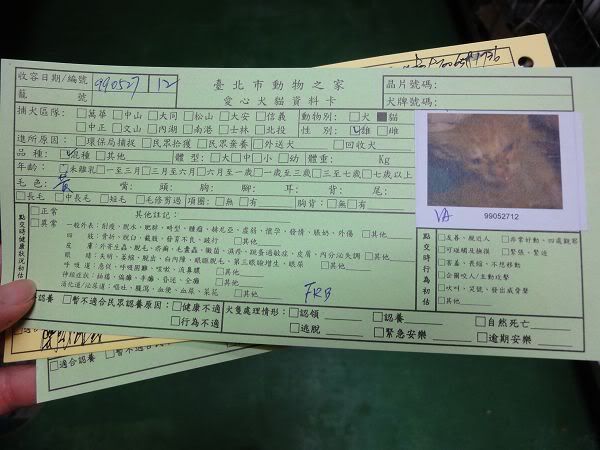 收容日期/編號 990527 12
籠 號
臺北市動物之家
愛心犬貓資料卡
晶片號碼:
犬牌號碼:
捕犬區隊: □萬華 □中山 □大同 □松山 □大安 □信義 動物別: □犬 ■貓
□中正 □文山 □內湖 □南港 □士林 □北投 性 別: □雄 □雌
進所原因: □環保局捕捉 □民眾拾獲 □民眾棄養 □外送犬 □回收犬
品 種: □混種 □其他 體 型: □大 □中 □小 □幼 體重: Kg
年齡: □未離乳 □一至三月 □三月至六月 □六月至一歲 □一歲至三歲 □三至七歲 □七歲以上
毛 色: 黃 嘴: 頭: 胸: 腳: 耳: 背: 尾:
□長毛 □中長毛 □短毛 □毛修剪過 項圈: □無 □有 胸背: □無 □有
VA 99052712
點交時健康狀況初估
□正常
□異常
其他註記:
一般外表: 削瘦、脱水、肥胖、畸型、腫瘤、赫尼亞、虛弱、懷孕、發情、脹奶、外傷 □其他
四 肢: 骨折、脫臼、截肢、發育不良、跛行 □其他
皮 膚: 外寄生蟲、脫毛、疥癬、毛囊蟲、黴菌、濕疹、跳蚤過敏症、皮屑、內分泌失調 □其他
眼 睛: 失明、萎縮、脫出、白內障、眼瞼脫毛、第三眼瞼增生、眼屎 □其他
呼吸道: 急促、呼吸困難、咳嗽、流鼻膿 □其他
神經症狀: 抽搐、偏癱、半癱、昏迷、全癱 □其他
消化道/泌尿道: 嘔吐、腹瀉、血便、血尿、尿花 □其他
FRB
點交時行為初估
□友善、親近人 □非常好動、四處觀察
□可碰觸及撫摸 □緊張、緊迫
□害羞、畏縮、不想移動
□企圖咬人/主動攻擊
□吠叫、哭號、發出威脅聲
□其他
認養 □暫不適合民眾認養原因: □健康不適
□行為不適
犬隻處理情形: □認領 □認養 □自然死亡
□逃脫 □緊急安樂 □逾期安樂
□適合認養